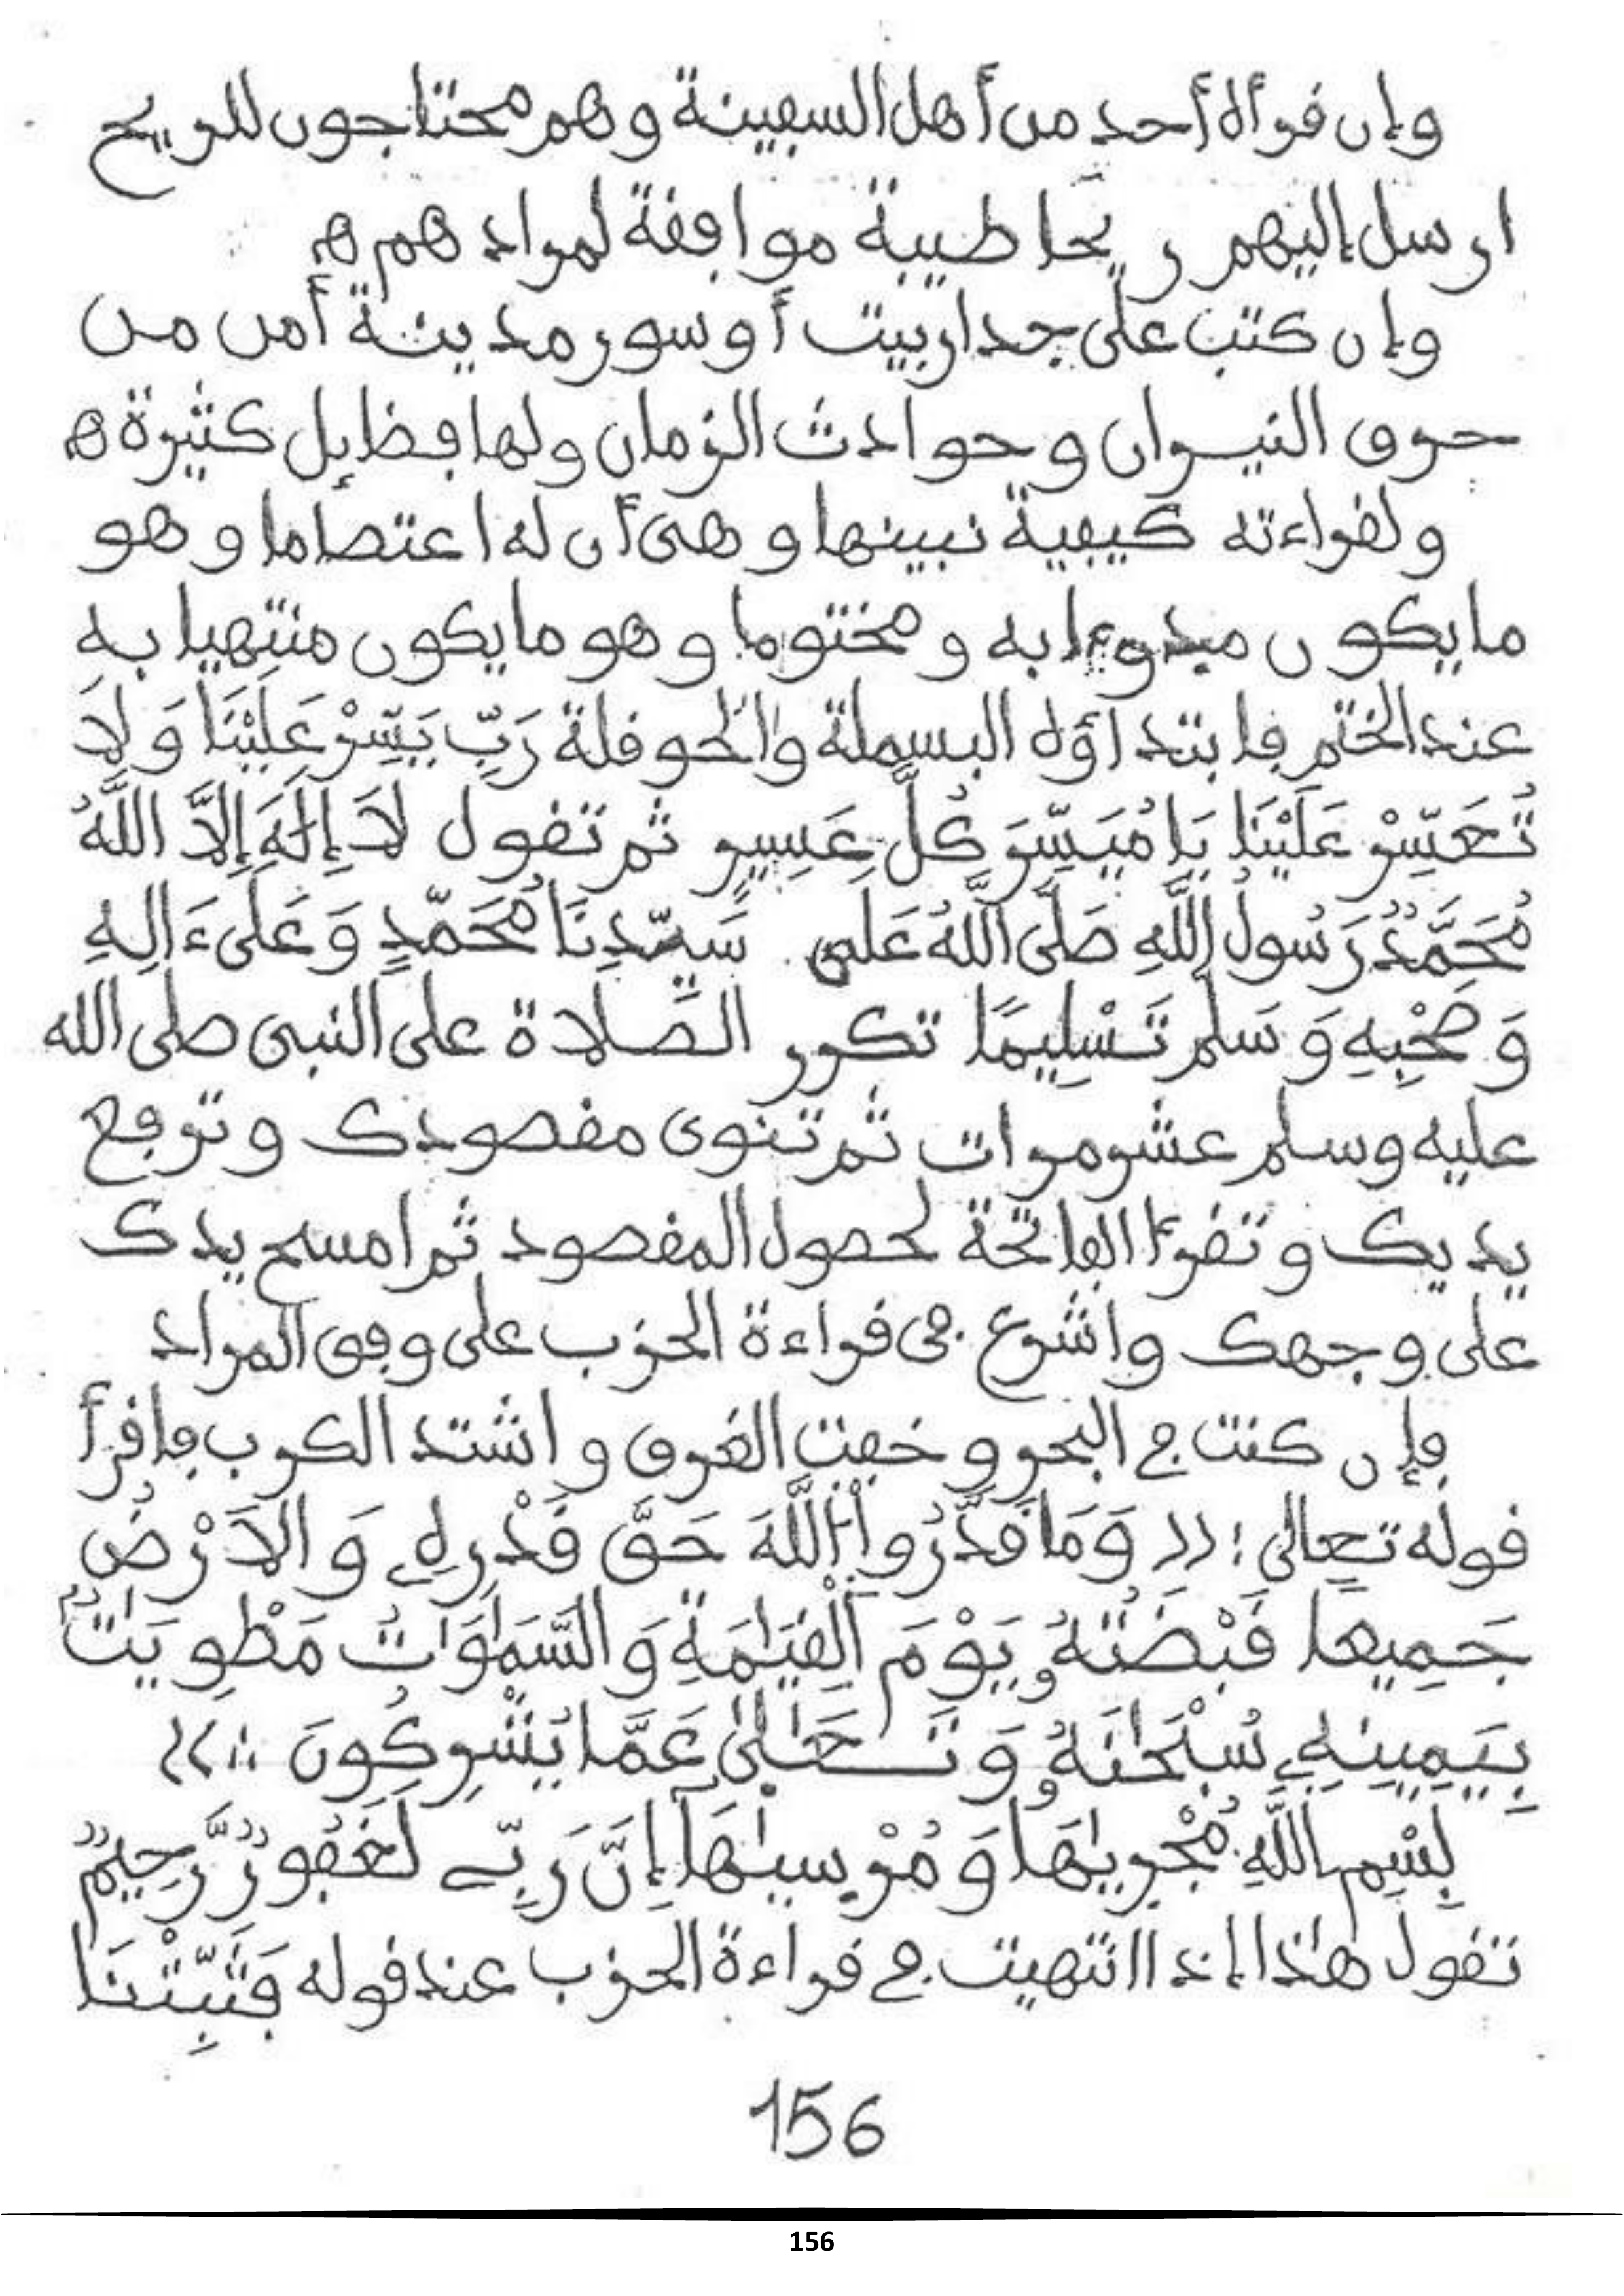 وإن قرأه أحد من أهل السفينة وهم محتاجون للريح
ارسل إليهم ريحا طيبة موافقة لمرادهم ه
وإن كتب على جدار بيت أو سور مدينة أمن من
حرق النيران وحوادث الزمان ولها فضايل كثيرة ه
ولقراءته كيفية نبينها وهى أن له اعتصاما وهو
ما يكون مبدوءا به ومختوما وهو ما يكون منتهيا به
عند الختم فابتداؤه البسملة والحوقلة رَبِّ يَسِّرْ عَلَيْنَا وَلَا
تُعَسِّرْ عَلَيْنَا يَا مُيَسِّرَ كُلِّ عَسِيرٍ ثم تقول لَا إِلَهَ إِلَّا اللَّهُ
مُحَمَّدٌ رَسُولُ اللَّهِ صَلَّى اللَّهُ عَلَى سَيِّدِنَا مُحَمَّدٍ وَعَلَىٰ ءَالِهِ
وَصَحْبِهِ وَسَلِّم تَسْلِيمًا تكرر الصَّلاة على النبى صلى الله
عليه وسلم عشر مرات ثم تنوى مقصودك وترفع
يديك وتقرأ الفاتحة لحصول المقصود ثم امسح يدك
على وجهك واشرع فى قراءة الحزب على وفق المراد
فإن كنت في البحر وخفت الغرق واشتد الكرب فاقرأ
قوله تعالى : (( وَمَا قَدَرُواْ اللَّهَ حَقَّ قَدْرِهِۦ وَالَارْضُ
جَمِيعا قَبْضَتُهُۥ يَوْمَ اَلْقِيَٰمَةِ وَالسَّمَٰوَٰتُ مَطْوِيَّٰتٌ
بِيَمِينِهِۦ سُبْحَٰنَهُۥ وَتَعَٰلَىٰ عَمَّا يُشْرِكُونَ ))
بِسْمِ اللَّهِ مُجْرَىٰهَا وَمُرْسَىٰهَا إِنَّ رَبِّے لَغَفُورٌ رَّحِيمٌ
تقول هٰذا إذا انتهيت في قراءة الحزب عند قوله فَثَبِّتْنَا
156
156